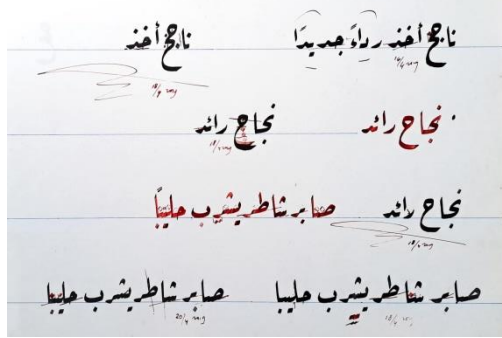 ناجح أخذ رداءً جديدًا ناجح أخذ
نجاح رائد نجاح رائد
نجاح رائد صابر شاطر يشرب حليبًا
صابر شاطر يشرب حليبا صابر شاطر يشرب حليبا